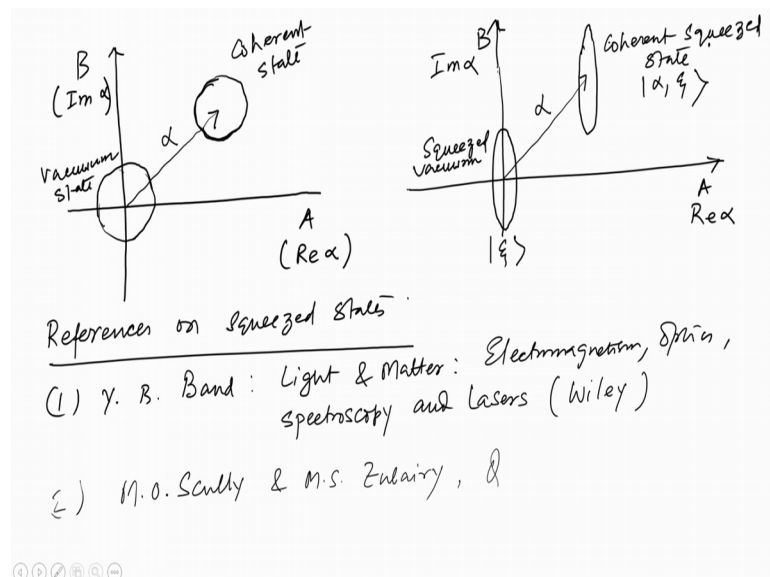 B
(Im α)
Coherent
state
α
Vacuum
state
A
(Re α)
B
Im α
Coherent Squeezed
state
|α, ξ⟩
α
Squeezed
vacuum
A
Re α
|ξ⟩
References on squeezed states
(1) Y. B. Band : Light & Matter : Electromagnetism, Optics,
spectroscopy and Lasers (Wiley)
2) M.O. Scully & M.S. Zubairy, Q